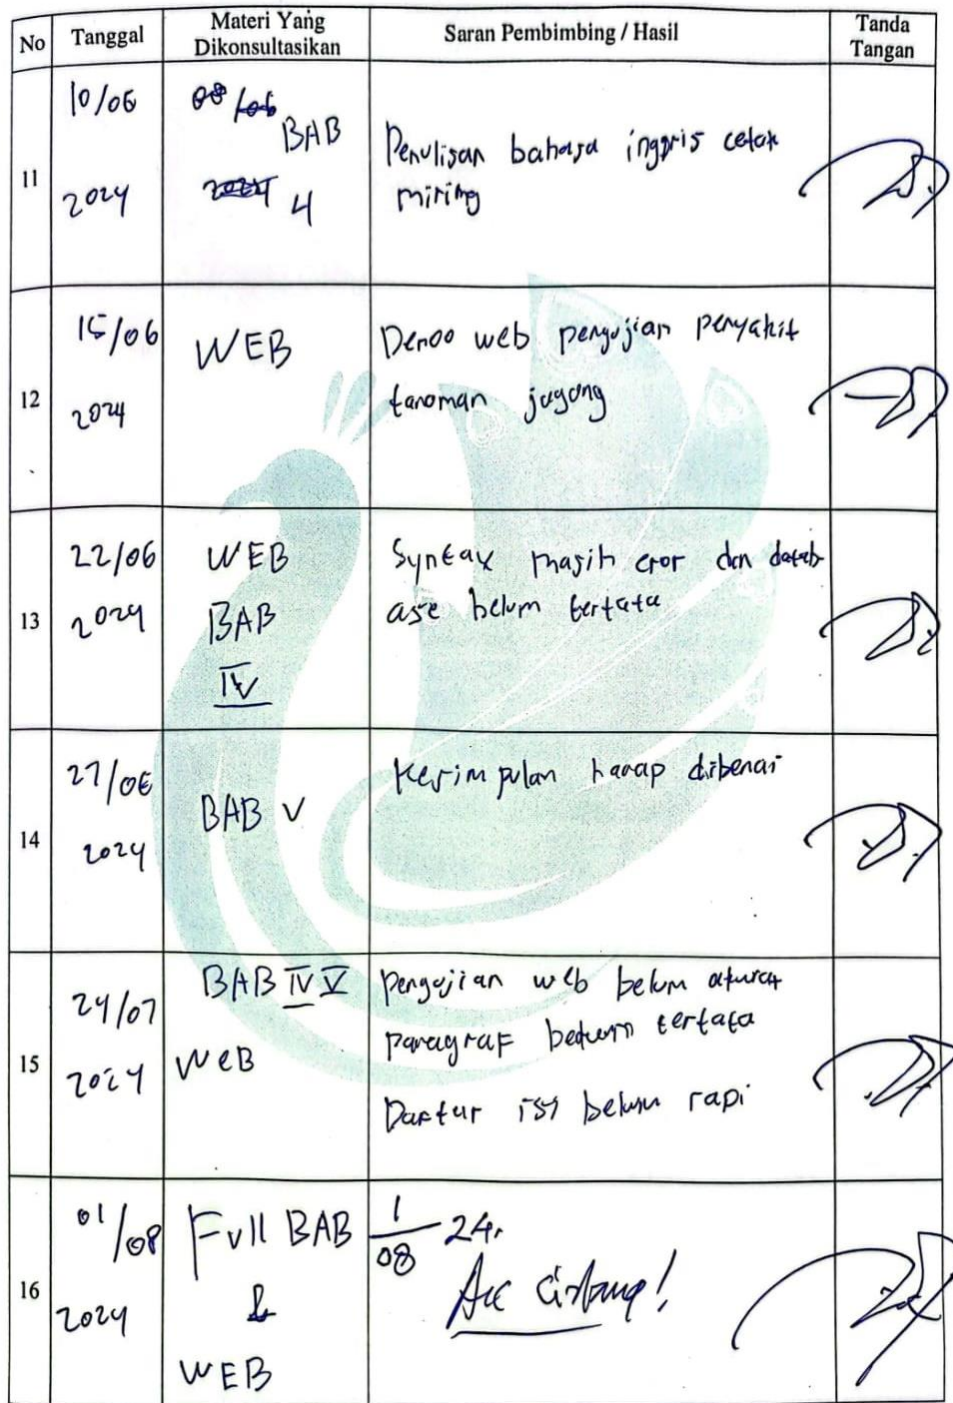 No Tanggal Materi Yang Dikonsultasikan Saran Pembimbing / Hasil Tanda Tangan
11
10/06
2024
08/06
BAB
2024 4
Penulisan bahasa inggris cetak
miring
12
15/06
2024
WEB
Demo web pengujian penyakit
tanaman jagung
13
22/06
2024
WEB
BAB
IV
Syntax masih eror dan datab
ase belum tertata
14
27/06
2024
BAB V
Kesimpulan harap dibenai
15
24/07
2024
BAB IV V
WEB
Pengujian web belum akurat
paragraf belum tertata
Daftar isi belum rapi
16
01/08
2024
Full BAB
&
WEB
1/08 24.
Acc